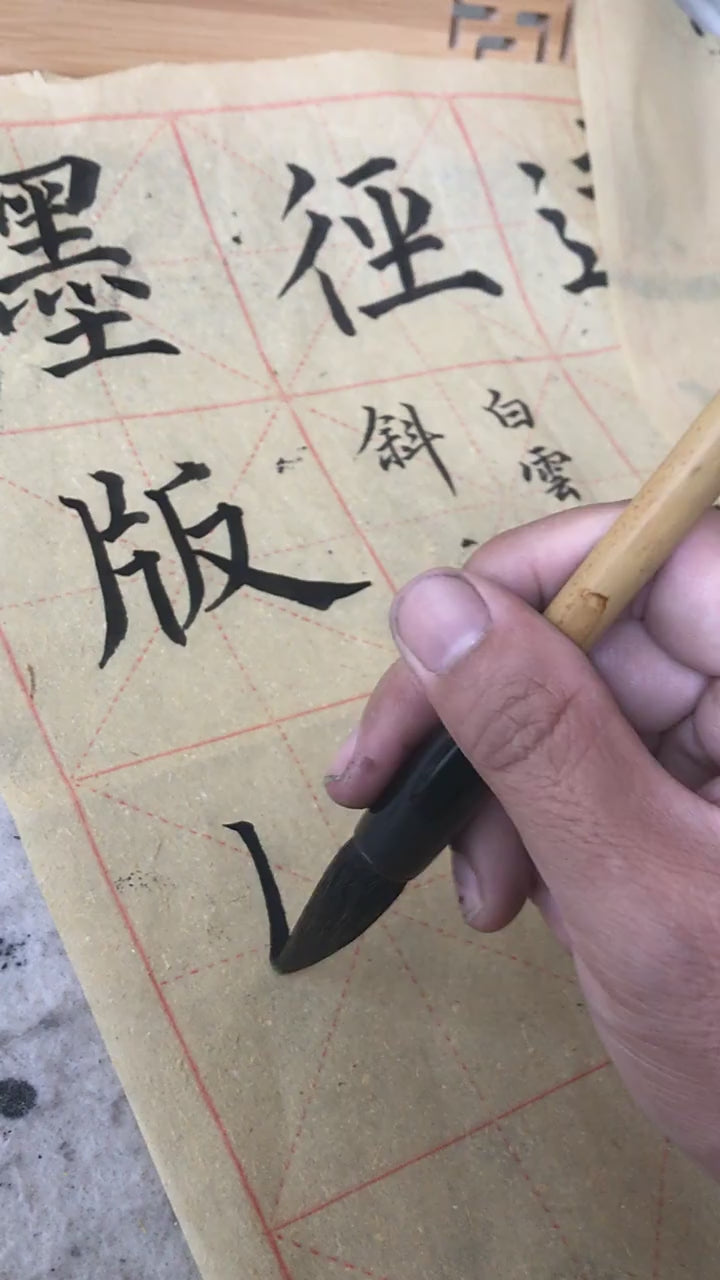 墨徑
版斜白
雲